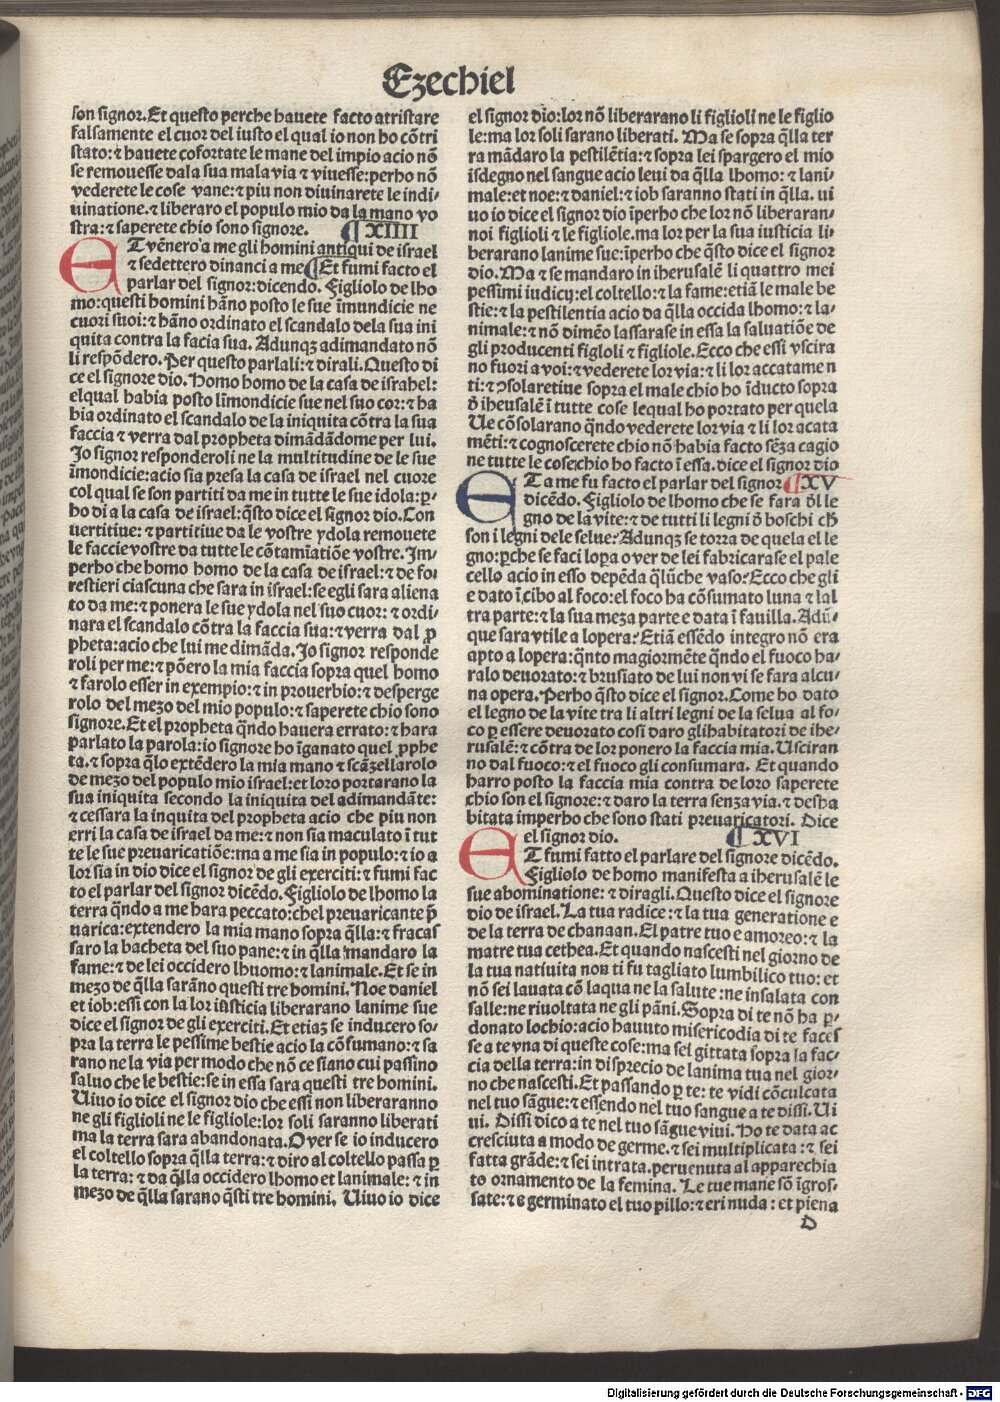 Ezechiel
son signor. Et questo perche hauete facto atristare
falsamente el cuor del iusto el qual io non ho cõtri
stato: ⁊ hauete cofortate le mane del impio acio nõ
se remouesse dala sua mala via ⁊ viuesse: perho nõ
vederete le cose vane: ⁊ piu non diuinarete le indi/
uinatione. ⁊ liberaro el populo mio da la mano vo
stra: ⁊ saperete chio sono signore. ¶ XIIII
ET vẽnero a me gli homini antiqui de israel
⁊ sedettero dinanci a me ¶ Et fumi facto el
parlar del signor: dicendo. Figliolo de lho
mo: questi homini hãno posto le sue ĩmundicie ne
cuori suoi: ⁊ hãno ordinato el scandalo dela sua ini
quita contra la facia sua. Adunqʒ adimandato nõ
li respõdero. Per questo parlali: ⁊ dirali. Questo di
ce el signore dio. Homo homo de la casa de israhel:
elqual habia posto lĩmondicie sue nel suo cor: ⁊ ha
bia ordinato el scandalo de la iniquita cõtra la sua
faccia ⁊ verra dal propheta dimãdãdome per lui.
Io signor responderoli ne la multitudine de le sue
ĩmondicie: acio sia presa la casa de israel nel cuore
col qual se son partiti da me in tutte le sue idola: p̱/
ho di a la casa de israel: q̃sto dice el signor dio. Con
uertitiue: ⁊ partitiue da le vostre ydola remouete
le faccie vostre da tutte le cõtamĩatiõe vostre. Im/
perho che homo homo de la casa de israel: ⁊ de fo/
restieri ciascuna che sara in israel: se egli sara aliena
to da me: ⁊ ponera le sue ydola nel suo cuor: ⁊ ordi/
nara el scandalo cõtra la faccia sua: ⁊ verra dal p̱
pheta: acio che lui me dimãda. Io signor responde
roli per me: ⁊ põero la mia faccia sopra quel homo
⁊ farolo esser in exempio: ⁊ in prouerbio: ⁊ desperge
rolo del mezo del mio populo: ⁊ saperete chio sono
signore. Et el propheta q̃ndo hauera errato: ⁊ hara
parlato la parola: io signore ho ĩganato quel p̱phe
ta. ⁊ sopra q̃lo extẽdero la mia mano ⁊ scãzellarolo
de mezo del populo mio israel: et loro portarano la
sua iniquita secondo la iniquita del adimandãte:
⁊ cessara la inquita del propheta acio che piu non
erri la casa de israel da me: ⁊ non sia maculato ĩ tut
te le sue preuaricatiõe: ma a me sia in populo: ⁊ io a
lor sia in dio dice el signor de gli exerciti: ⁊ fumi fac
to el parlar del signor dicẽdo. Figliolo de lhomo la
terra q̃ndo a me hara peccato: chel preuaricante p̃
uarica: extendero la mia mano sopra q̃lla: ⁊ fracas
saro la bacheta del suo pane: ⁊ in q̃lla mandaro la
fame: ⁊ de lei occidero lhuomo: ⁊ lanimale. Et se in
mezo de q̃lla sarãno questi tre homini. Noe daniel
et iob: essi con la lor iusticia liberarano lanime sue
dice el signor de gli exerciti. Et etiaʒ se inducero so/
pra la terra le pessime bestie acio la cõsumano: ⁊ sa
rano ne la via per modo che nõ ce siano cui passino
saluo che le bestie: se in essa sara questi tre homini.
Uiuo io dice el signor dio che essi non liberaranno
ne gli figlioli ne le figliole: lor soli saranno liberati
ma la terra sara abandonata. Over se io inducero
el coltello sopra q̃lla terra: ⁊ diro al coltello passa p̱
la terra: ⁊ da q̃lla occidero lhomo et lanimale: ⁊ in
mezo de q̃lla sarano q̃sti tre homini. Uiuo io dice
el signor dio: lor nõ liberarano li figlioli ne le figlio
le: ma lor soli sarano liberati. Ma se sopra q̃lla ter
ra mãdaro la pestilẽtia: ⁊ sopra lei spargero el mio
isdegno nel sangue acio leui da q̃lla lhomo: ⁊ lani/
male: et noe: ⁊ daniel: ⁊ iob saranno stati in q̃lla. ui
uo io dice el signor dio ĩperho che lor nõ liberaran/
noi figlioli ⁊ le figliole. ma lor per la sua iusticia li/
berarano lanime sue: ĩperho che q̃sto dice el signor
dio. Ma ⁊ se mandaro in iherusalẽ li quattro mei
pessimi iudicij: el coltello: ⁊ la fame: etiã le male be
stie: ⁊ la pestilentia acio da q̃lla occida lhomo: ⁊ la/
nimale: ⁊ nõ dimẽo lassarase in essa la saluatiõe de
gli producenti figloli ⁊ figliole. Ecco che essi vscira
no fuori a voi: ⁊ vederete lor via: ⁊ li lor accatamen
ti: ⁊ ↄsolaretiue sopra el male chio ho ĩducto sopra
d̃ iheusalẽ ĩ tutte cose lequal ho portato per quela
Ue cõsolarano q̃ndo vederete lor via ⁊ li lor acata
mẽti: ⁊ cognoscerete chio nõ habia facto sẽza cagio
ne tutte le cose: chio ho facto ĩ essa. dice el signor dio
ET a me fu facto el parlar del signor ¶ XV
dicẽdo. Figliolo de lhomo che se fara d̃l le
gno de la vite: ⁊ de tutti li legni d̃ boschi ch̃
son i legni dele selue? Adunqʒ se torra de quela el le
gno: p̱che se faci lopa o ver de lei fabricarase el pale
cello acio in esso depẽda q̃lũche vaso? Ecco che gli
e dato ĩ cibo al foco: el foco ha cõsumato luna ⁊ lal
tra parte: ⁊ la sua meza parte e data ĩ fauilla. Adũ/
que sara vtile a lopera? Etiã essẽdo integro nõ era
apto a lopera: q̃nto magiormẽte q̃ndo el fuoco ha/
ralo deuorato: ⁊ brusiato de lui non vi se fara alcu/
na opera. Perho q̃sto dice el signor. Come ho dato
el legno de la vite tra li altri legni de la selua al fo/
co p̱ essere deuorato cosi daro gli habitatori de ihe/
rusalẽ: ⁊ cõtra de lor ponero la faccia mia. Usciran
no dal fuoco: ⁊ el fuoco gli consumara. Et quando
harro posto la faccia mia contra de loro saperete
chio son el signore: ⁊ daro la terra senza via. ⁊ desha
bitata imperho che sono stati preuaricatori. Dice
el signor dio. ¶ XVI
ET fumi fatto el parlare del signore dicẽdo.
Figliolo de homo manifesta a iherusalẽ le
sue abominatione: ⁊ diragli. Questo dice el signore
dio de israel. La tua radice: ⁊ la tua generatione e
de la terra de chanaan. El patre tuo e amoreo: ⁊ la
matre tua cethea. Et quando nascesti nel giorno de
la tua natiuita non ti fu tagliato lumbilico tuo: et
nõ sei lauata cõ laqua ne la salute: ne insalata con
salle: ne riuoltata ne gli pãni. Sopra di te nõ ha p̱/
donato lochio: acio hauuto misericordia di te faces
se a te vna di queste cose: ma sei gittata sopra la fac/
cia della terra: in disprecio de lanima tua nel gior/
no che nascesti. Et passando p̱ te: te vidi cõculcata
nel tuo sãgue: ⁊ essendo nel tuo sangue a te dissi. Ui
ui. Dissi dico a te nel tuo sãgue viui. Ho te data ac
cresciuta a modo de germe. ⁊ sei multiplicata: ⁊ sei
fatta grãde: ⁊ sei intrata. peruenuta al apparechia
to ornamento de la femina. Le tue mane sõ ĩgros/
sate: ⁊ e germinato el tuo pillo: ⁊ eri nuda: et piena
D
Digitalisierung gefördert durch die Deutsche Forschungsgemeinschaft - DFG